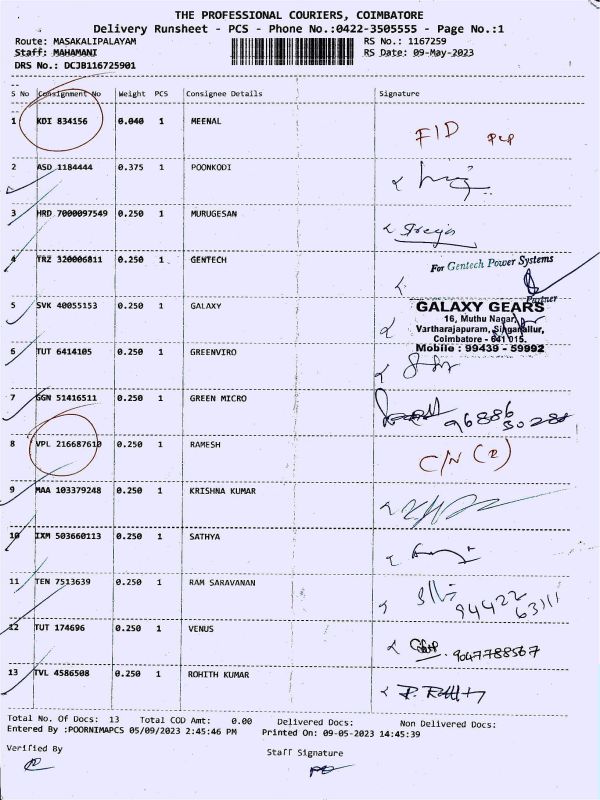 THE PROFESSIONAL COURIERS, COIMBATORE
Delivery Runsheet - PCS - Phone No.:0422-3505555 - Page No.:1
Route: MASAKALIPALAYAM RS No.: 1167259
Staff: MAHAMANI RS Date: 09-May-2023
DRS No.: DCJB116725901
S No Consignment No Weight PCS Consignee Details Signature
1 KDI 834156 0.040 1 MEENAL F/D
2 ASD 1184444 0.375 1 POONKODI
3 HRD 7000097549 0.250 1 MURUGESAN
4 TRZ 320006811 0.250 1 GENTECH For Gentech Power Systems
Partner
5 SVK 40055153 0.250 1 GALAXY GALAXY GEARS
16, Muthu Nagar,
Vartharajapuram, Singanallur,
Coimbatore - 641 015.
Mobile : 99439 - 59992
6 TUT 6414105 0.250 1 GREENVIRO
7 GGN 51416511 0.250 1 GREEN MICRO 96886
8 VPL 216687610 0.250 1 RAMESH C/N (R)
9 MAA 103379248 0.250 1 KRISHNA KUMAR
10 IXM 503660113 0.250 1 SATHYA
11 TEN 7513639 0.250 1 RAM SARAVANAN 94422
63111
12 TUT 174696 0.250 1 VENUS 9047788567
13 TVL 4586508 0.250 1 ROHITH KUMAR
Total No. Of Docs: 13 Total COD Amt: 0.00 Delivered Docs: Non Delivered Docs:
Entered By :POORNIMAPCS 05/09/2023 2:45:46 PM Printed On: 09-05-2023 14:45:39
Verified By Staff Signature